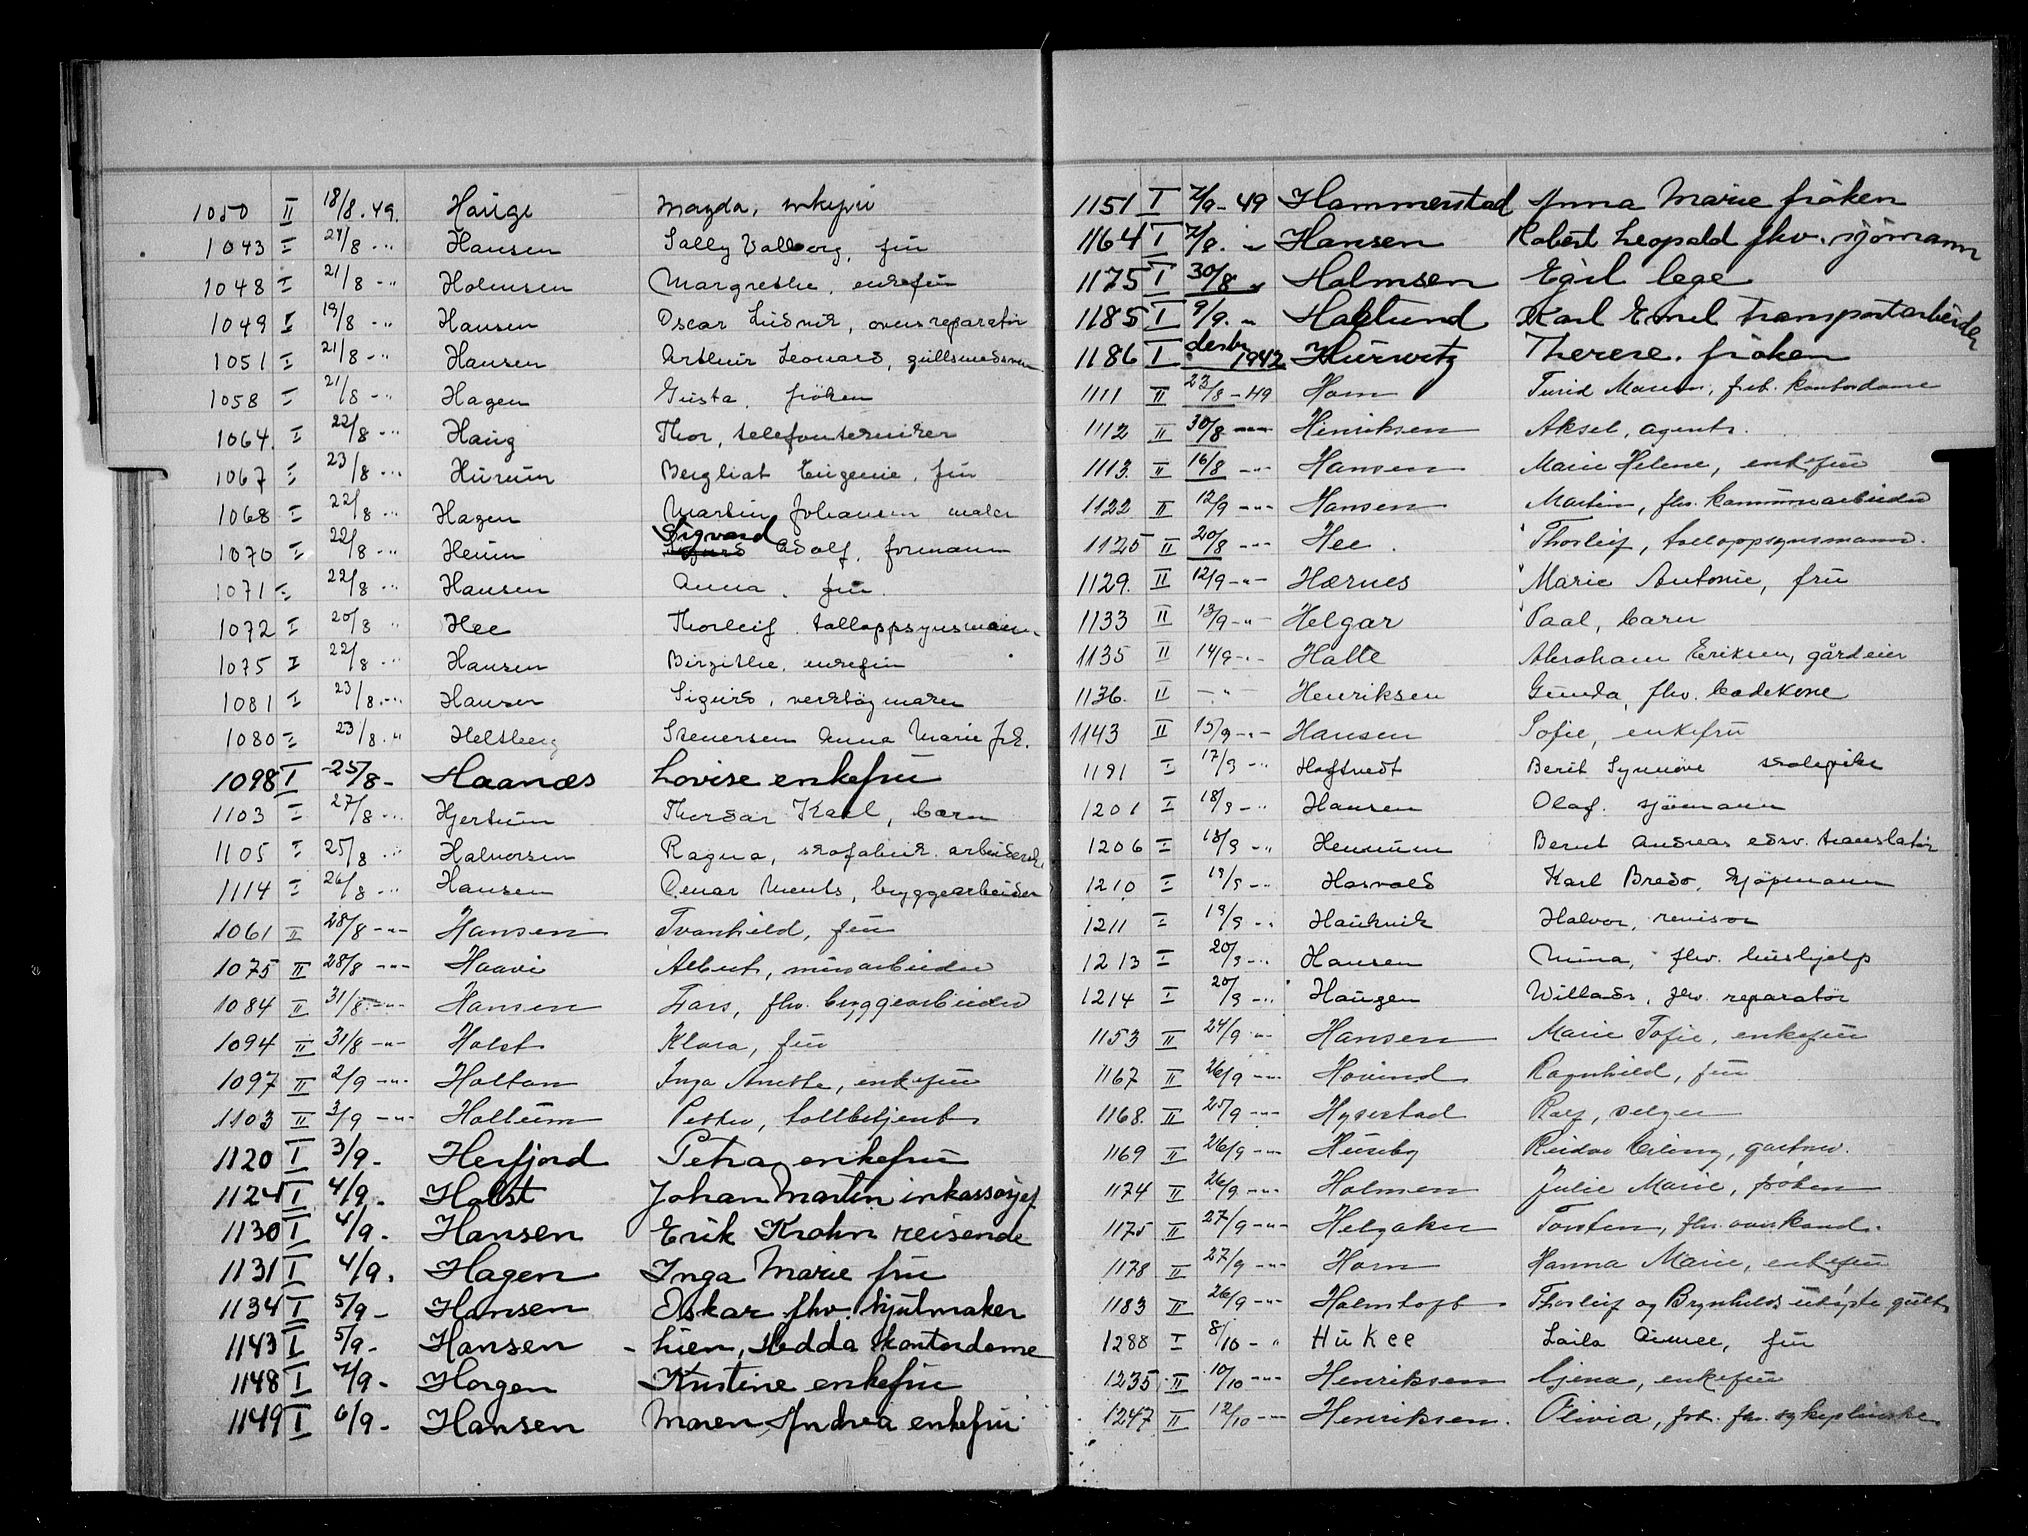 1050 II 18/8.49. Hauge Magda, enkefru
1043 I 24/8 -"- Hansen Sally Valborg, fru
1048 I 21/8 -"- Holmsen Margrethe, enkefru
1049 I 19/8 -"- Hansen Oscar Ludvik, oversreparatør
1051 I 21/8 -"- Hansen Arthur Leonard, gullsmedsvenn
1058 I 21/8 -"- Hagen Gusta, frøken
1064. I 22/8 -"- Haug Thor, telefontekniker
1067 I 23/8 -"- Hurum Bergliot Eugenie, fru
1068 I 22/8 -"- Hagen Martin Johansen maler
1070 I 22/8 -"- Heum Sigvard Adolf, formann
1071 I 22/8 -"- Hansen Anna, fru.
1072 I 20/8 " Hee Thorleif tolloppsynsmann.
1075 I 22/8 -"- Hansen Birgithe, enkefru
1081 I 23/8.-"- Hansen Sigurd, verktøymaker
1080 I 23/8." Heltberg Stenersen Anna Marie frk.
1098 I 25/8- Haanæs Lovise enkefru
1103 I 27/8 -"- Hjertum Thordar Karl, barn
1105 I 25/8 -"- Halvorsen Ragna, skofabrik. arbeiderske
1114 I 26/8 -"- Hansen Omar Ments, bryggearbeider
1061 II 28/8 -"- Hansen Tvanhild, fru
1075 II 28/8 -"- Haavi Albert, murarbeider
1084 II 31/8 -"- Hansen Lars, fhv. bryggearbeider
1094 II 31/8 -"- Holst Klara, fru
1097 II 2/9 -"- Holtan Inga Anette, enkefru
1103 II 3/9 -"- Holtum Petter, tollbetjent
1120 I 3/9- Herfjord Petra enkefru
1124 I 4/9. Holst Johan Martin inkassosjef
1130 I 4/9. Hansen Erik Krohn reisende
1131 I 4/9. Hagen Inga Marie fru
1134 I 5/9- Hansen Oskar fhv. hjulmaker
1143 I 5/9- Hansen - Lien, Hedda kontordame
1148 I 7/9- Horgen Kristine enkefru
1149 I 6/9- Hansen Maren Andrea enkefru
1151 I 7/9-49 Hammerstad Anna Marie frøken
1164 I 7/9. " Hansen Robert Leopold fhv. sjømann
1175 I 30/8 " Holmsen Egil lege
1185 I 9/9. " Haglund Karl Emil transportarbeider
1186 I desbr 1942 Hurwitz Therese. frøken
1111 II 23/8-49 Horn Turid Maren, frk. kontordame
1112 II 30/8 -"- Henriksen Aksel, agent.
1113. II 16/8 -"- Hansen Marie Helene, enkefru
1122 II 12/9 -"- Hansen Martin, fhv. kommunearbeider
1125 II 20/8 -"- Hee. Thorleif, tolloppsynsmann.
1129. II 12/9 -"- Hærnes Marie Antonie, fru
1133 II 13/9 -"- Helgar Paal, barn
1135 II 14/9 -"- Halle Abraham Eriksen, gårdeier
1136. II -"- Henriksen Gunda, fhv. badekone
1143 II 15/9 -"- Hansen Sofie, enkefru
1191 I 17/9 -"- Hoftvedt Berit Synnøve skolepike
1201 I 18/9 -"- Hansen Olaf. sjømann
1206 I 18/9 -"- Hennum Bernt Andreas edsv. translatør
1210 I 19/9 -"- Hasvold Karl Bredo, kjøpmann
1211 I 19/9 -"- Haukvik Halvor, revisor
1213 I 20/9 -"- Hansen Mina, fhv. hushjelp
1214 I 20/9 -"- Haugen Willads, fhv. reparatør
1153 II 24/9 " Hansen Marie Sofie, enkefru
1167 II 26/9 -"- Hovind Ragnhild, fru
1168. II 25/9 -"- Hyserstad Rolf, selger
1169 II 26/9 -"- Huseby Reidar Erling, gartner.
1174 II 26/9 -"- Holmen Julie Marie, frøken
1175 II 27/9 -"- Helgaker Torsten, fhv. overkond.
1178 II 27/9 -"- Horn Hanna Marie, enkefru
1183 II 26/9 -"- Holmtoft. Thorleif og Brynhilds udøpte gutt
1288 I 8/10 -" Hukee Laila Aimee, fru
1235 II 10/10 -"- Henriksen Gjena, enkefru
1247 II 12/10 -"- Henriksen. Olivia, frk. fhv. sykepleierske